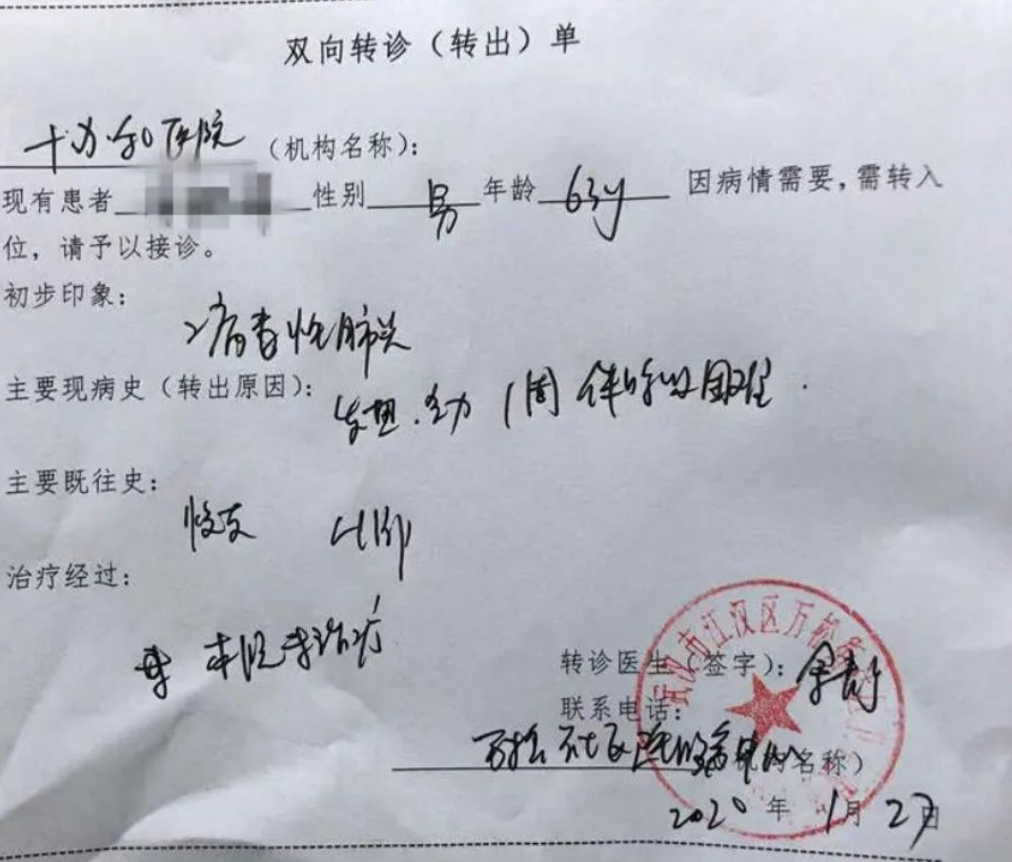 双向转诊（转出）单
医院（机构名称）：
现有患者 性别 男 年龄 63y 因病情需要，需转入
位，请予以接诊。
初步印象：
病毒性肺炎
主要现病史（转出原因）：
发热 1周 伴呼吸困难.
主要既往史：
治疗经过：
本院未治疗
转诊医生（签字）：
联系电话：
机构名称）
武汉市江汉区万松街
2020年1月27日